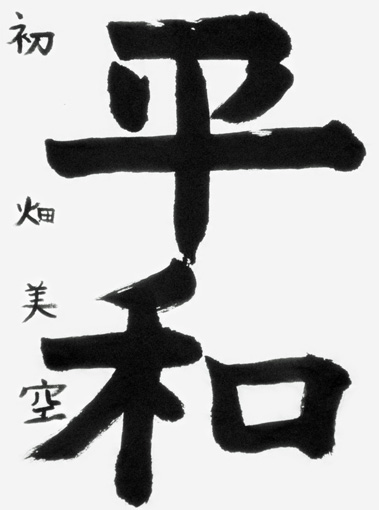 平和
初 畑 美空